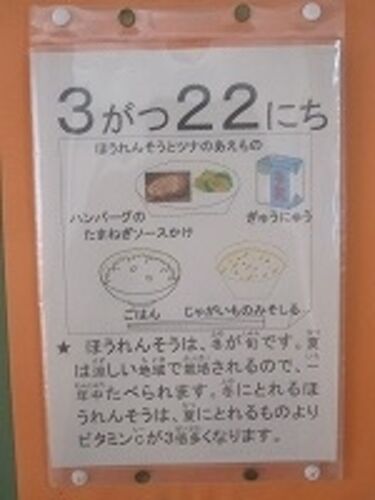 3がつ22にち
ほうれんそうとツナのあえもの
ハンバーグの
たまねぎソースかけ
ぎゅうにゅう
ごはん
じゃがいものみそしる
★ ほうれんそうは、冬が旬です。夏
は涼しい地域で栽培されるので、一
年中たべられます。冬にとれるほ
うれんそうは、夏にとれるものより
ビタミンCが3倍多くなります。